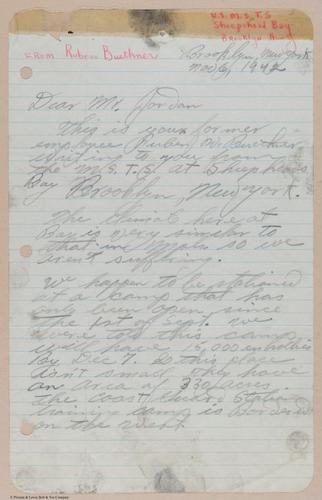 U.S.M.S.T.S
Sheepshead Bay
Brooklyn
FROM Ruben Buechner
Brooklyn, New York
Nov 6, 1942
Dear Mr. Jordan
This is your former
employee Ruben
writing to you from
the M.S.T.S. at Sheepshead
Bay Brooklyn, New York.
The climate here at
Bay is very similar to
that in so we
aren't suffering.
We happen to be stationed
at a camp that has
only been open since
the 1st of Sept. We
were told this camp
will have 5,000
By Dec 7. So this place
Ain't small. They have
an area of 330 acres.
The Coast Guard
training camp is Bordered
on the West.